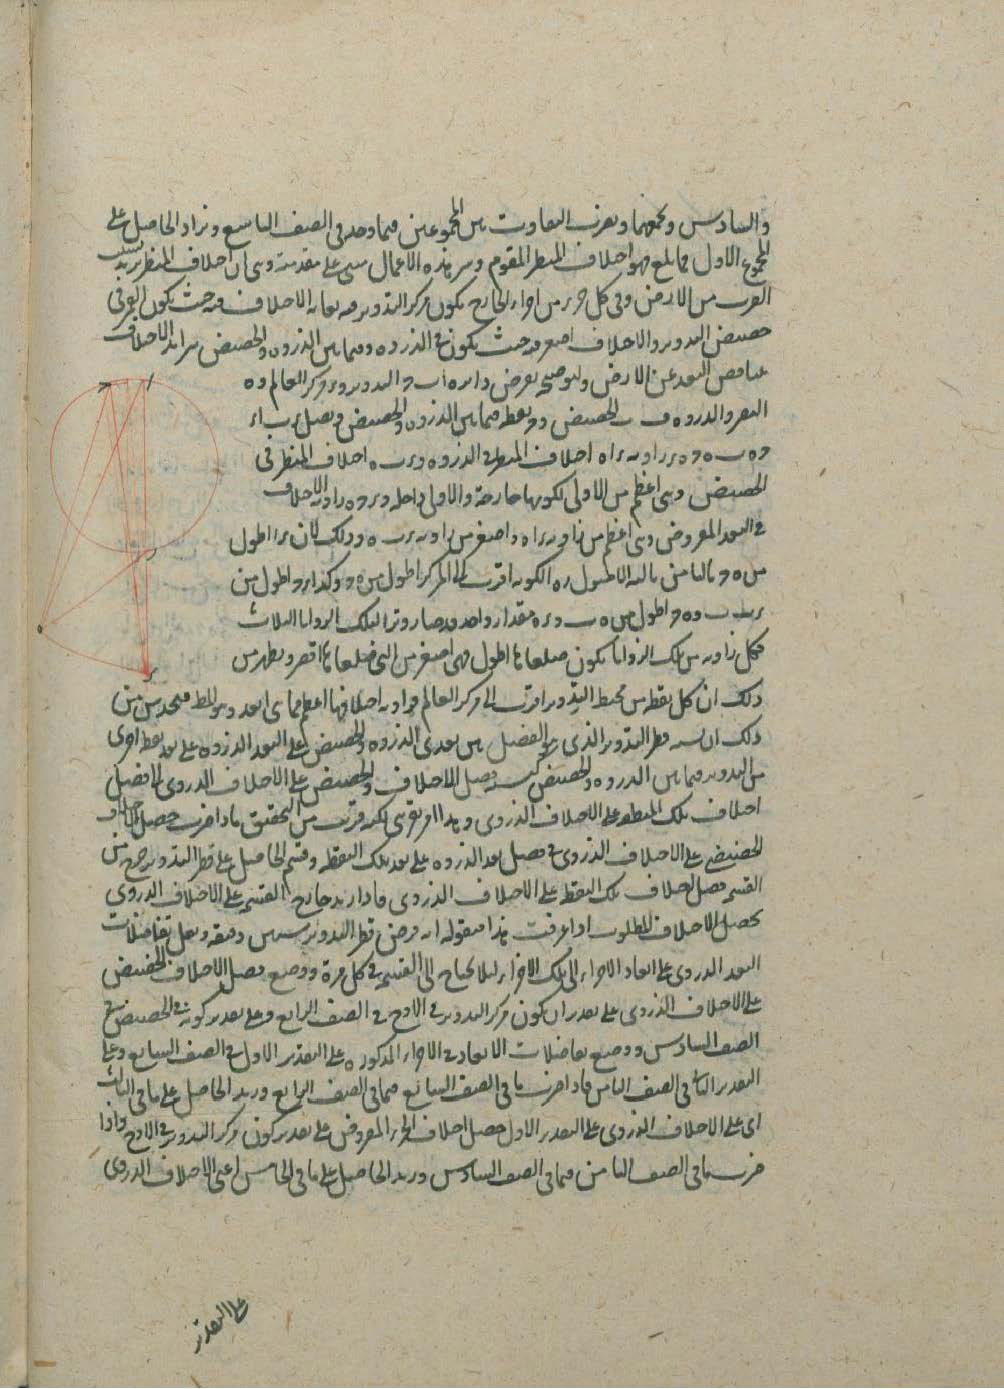 والسادس ويجمعهما ويضرب التفاوت بين المجموعين فيما وجد في الصف التاسع ويزاد الحاصل على
المجموع الاول فما بلغ فهو اختلاف المنظر المقوم وسر هذه الاعمال يبتنى على مقدمة وهى ان اختلاف المنظر يزيد بسبب
القرب من الارض وفى كل جزء من اجزاء الخارج يكون مركز التدوير فيه نهاية الاختلاف فيه حيث يكون القمر فى
حضيض التدوير والاختلاف اصغر فيه حيث يكون فى الذروة وفيما بين الذروة والحضيض يتزايد الاختلاف
بتناقص البعد عن الارض ولتوضيحه نفرض دائرة اب ح التدوير و ر مركز العالم و ه
البصر والذروة و ب الحضيض و ح نقطة فيما بين الذروة والحضيض ونصل ر ب ا ر
ح ه ب ه ح ه ر زاوية ر ا ه اختلاف المنظر فى الذروة و ر ب ه اختلاف المنظر فى
الحضيض وهى اعظم من الاولى لكونها خارجة والاولى داخلة و ر ح ه زاوية الاختلاف
فى البعد المفروض وهى اعظم من زاوية ر ا ه واصغر من زاوية ر ب ه وذلك لان ر ا اطول
من ر ح بالثامن بالثة الاصول ه ا لكونه اقرب الى المركز اطول من ه ح وكذا ر ح اطول من
ر ب و ه ح اطول من ه ب و ر ه مقدار واحد وقد صار وترا لتلك الزوايا الثلاث
فكل زاوية من تلك الزوايا يكون ضلعاها اطول فهى اصغر من التى ضلعاها اقصر ويظهر من
ذلك ان كل نقطة من محيط التدوير اقرب الى مركز العالم فزاوية اختلافها اعظم مما هى ابعد
ذلك ان نسبة قطر التدوير الذى هو الفضل بين بعدى الذروة والحضيض على البعد الذروة على بعد نقطة اخرى
من التدوير فيما بين الذروة والحضيض كنسبة فضل الاختلاف والحضيض على الاختلاف الذروى الى فضل
اختلاف تلك النقطة على الاختلاف الذروى وهذا امر تقريبى لكنه قريب من التحقيق فاذا ضرب فضل اختلاف
الحضيض على الاختلاف الذروى فى فضل بعد الذروة على بعد تلك النقطة وقسم الحاصل على قطر التدوير خرج من
القسمة فضل اختلاف تلك النقطة على الاختلاف الذروى فاذا زيد خارج القسمة على الاختلاف الذروى
يحصل الاختلاف المطلوب اذا عرفت هذا فنقول انه فرض قطر التدوير ستين دقيقة وجعل تفاضلات
البعد الذروى على ابعاد الاجزاء الى تلك الاجزاء لئلا يحتاج الى القسمة فى كل مرة ووضع فضل الاختلاف الحضيض
على الاختلاف الذروى على تقدير ان يكون مركز التدوير فى الاوج فى الصف الرابع وعلى تقدير كونه فى الحضيض فى
الصف السادس ووضع تفاضلات الابعاد فى الاجزاء المذكورة على التقدير الاول فى الصف السابع وعلى
التقدير الثانى فى الصف الثامن فاذا ضرب ما فى الصف السابع فيما فى الصف الرابع وزيد الحاصل على ما فى الثالث
اى على الاختلاف الذروى على التقدير الاول حصل اختلاف الجزء المفروض على تقدير كون مركز التدوير فى الاوج واذا
ضرب ما فى الصف الثامن فيما فى الصف السادس وزيد الحاصل على ما فى الخامس اعنى الاختلاف الذروى
على التقدير